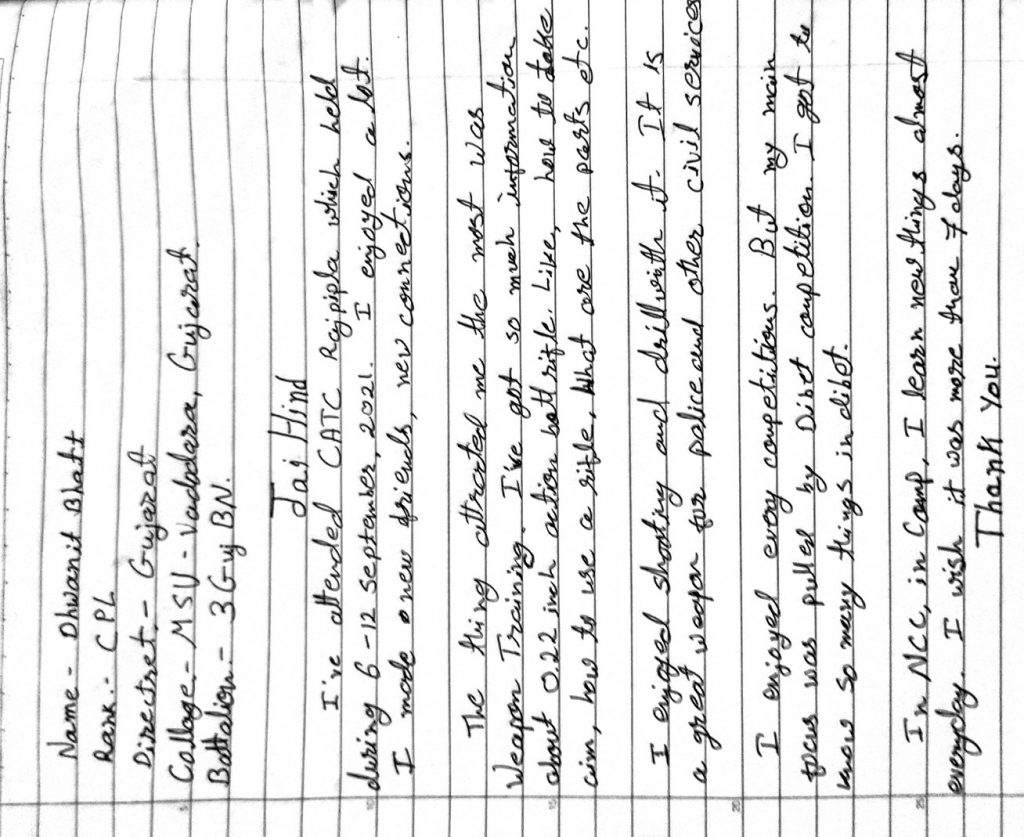 Name - Dhwanit Bhatt
Rank - CPL
Directret - Gujarat
Collage - MSU - Vadodara, Gujarat.
Battalion - 3 Guj BN.
Jai Hind
I've attended CATC Rajpipla which held
during 6-12 september, 2021. I enjoyed a lot.
I made new friends, new connections.
The thing attracted me the most was
Weapon Training. I've got so much information
about 0.22 inch action bolt rifle. Like, how to take
aim, how to use a rifle, What are the parts etc.
I enjoyed shooting and drill with it. It is
a great weapon for police and other civil services
I enjoyed every competitions. But my main
focus was pulled by Dibst competition. I got to
know so many things in dibst.
In NCC, in Camp, I learn new things almost
everyday. I wish it was more than 7 days.
Thank You.
5
10
15
20
25